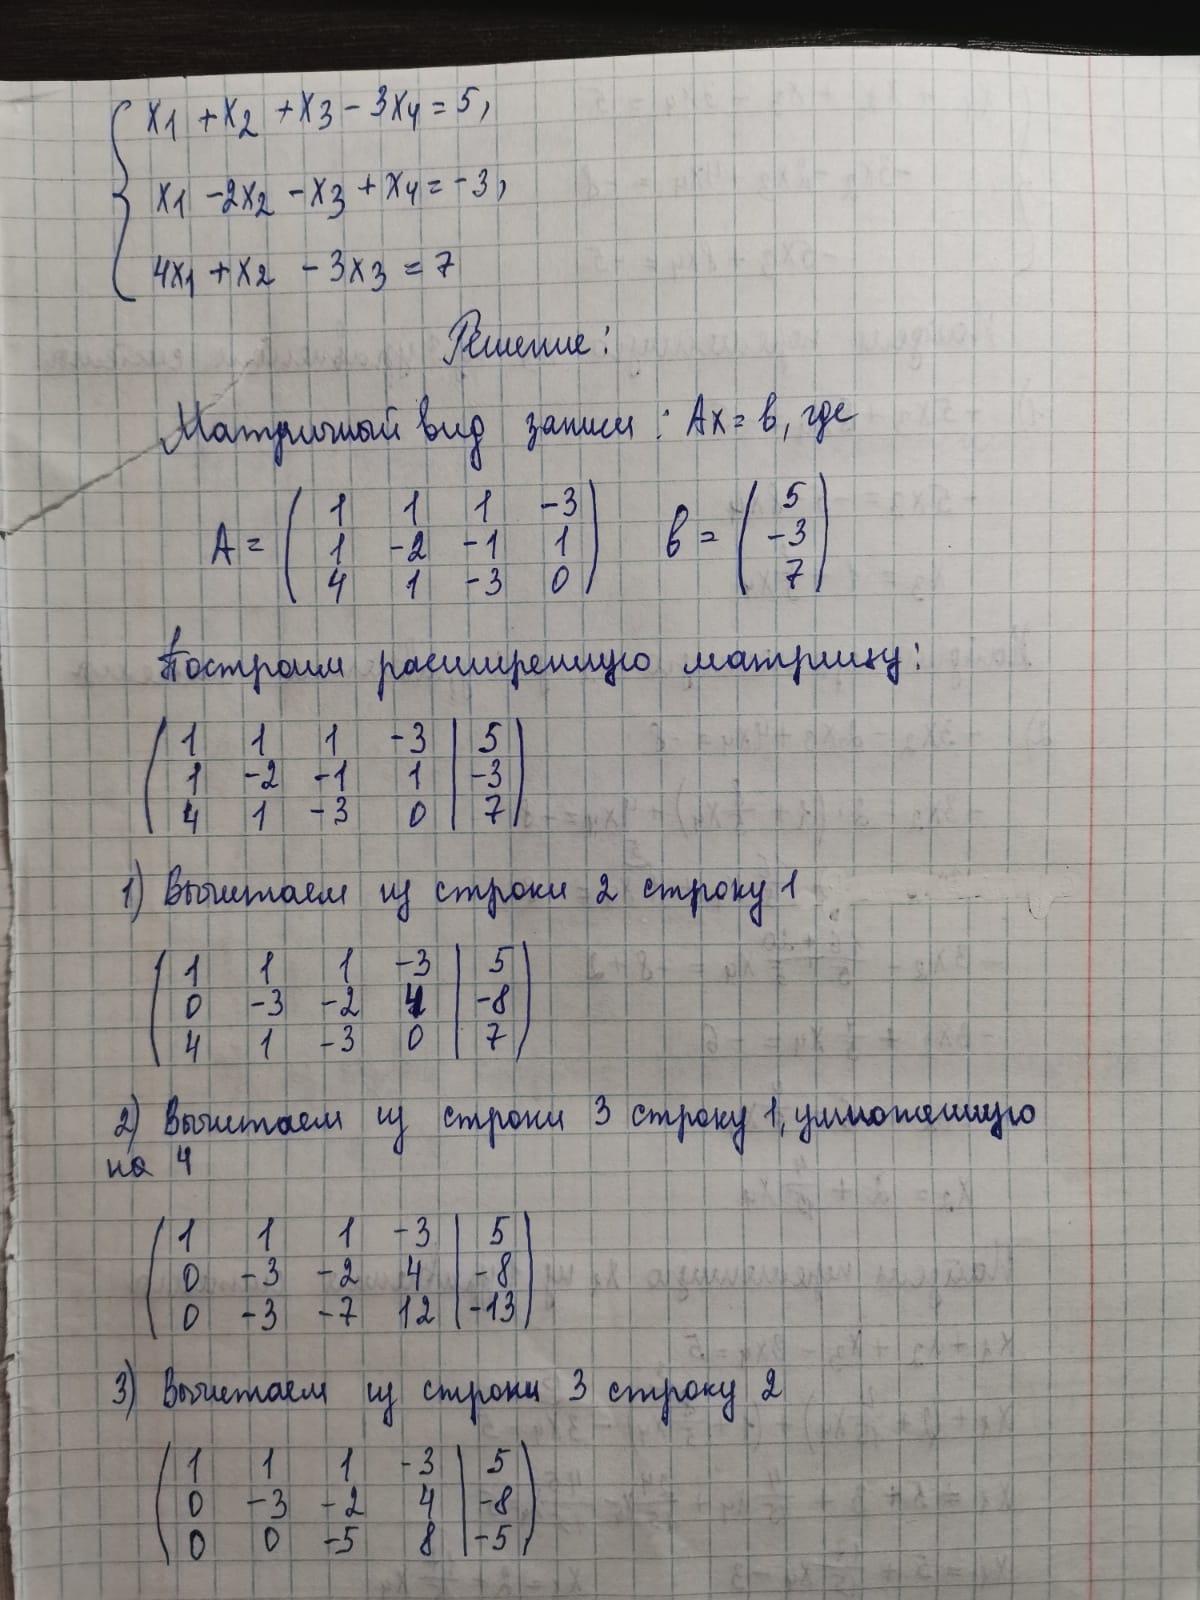 x1 + x2 + x3 - 3x4 = 5,
x1 - 2x2 - x3 + x4 = -3,
4x1 + x2 - 3x3 = 7
Решение:
Матричный вид записи: Ax = b, где
A = ( 1 1 1 -3 ) b = ( 5 )
1 -2 -1 1 -3
4 1 -3 0 7
Построим расширенную матрицу:
1 1 1 -3 | 5
1 -2 -1 1 | -3
4 1 -3 0 | 7
1) Вычитаем из строки 2 строку 1
1 1 1 -3 | 5
0 -3 -2 4 | -8
4 1 -3 0 | 7
2) Вычитаем из строки 3 строку 1, умноженную
на 4
1 1 1 -3 | 5
0 -3 -2 4 | -8
0 -3 -7 12 | -13
3) Вычитаем из строки 3 строку 2
1 1 1 -3 | 5
0 -3 -2 4 | -8
0 0 -5 8 | -5